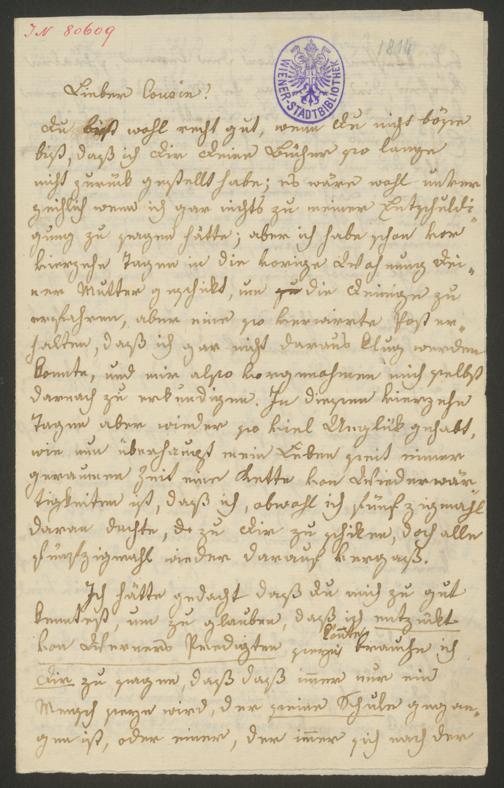 IN 80609
1814
WIENER STADTBIBLIOTHEK
Lieber Cousin!
Du bist wohl recht gut, wenn Du nicht böse
bist, daß ich Dir Deine Bücher so lange
nicht zurük gestellt habe; es wäre wohl unver
zeihlich wenn ich gar nichts zu meiner Entschuldi
gung zu sagen hätte; aber ich habe schon vor
vierzehn Tagen in die vorige Wohnung Dei-
ner Mutter geschikt, um die Deinige zu
erfahren, aber eine so verwirrte Post er-
halten, daß ich gar nicht daraus klug werden
konnte, und mir also vorgenohmen mich selbst
darnach zu erkundigen. In diesen vierzehn
Tagen aber wieder so viel Unglük gehabt,
wie nun überhaupt mein Leben seit einer
geraumen Zeit eine Kette von Wiederwär
tigkeiten ist, daß ich, obwohl ich fünfzigmahl
daran dachte, zu Dir zu schiken, doch alle
fünfzigmahl wieder darauf vergaß.
Ich hätte gedacht daß Du mich zu gut
kenntest, um zu glauben, daß ich entzükt
von Werners Predigten seyn könnte brauche ich
Dir zu sagen, daß daß immer nur ein
Mensch seyn wird, der seine Schule gegan-
gen ist, oder einer, der immer sich nach der